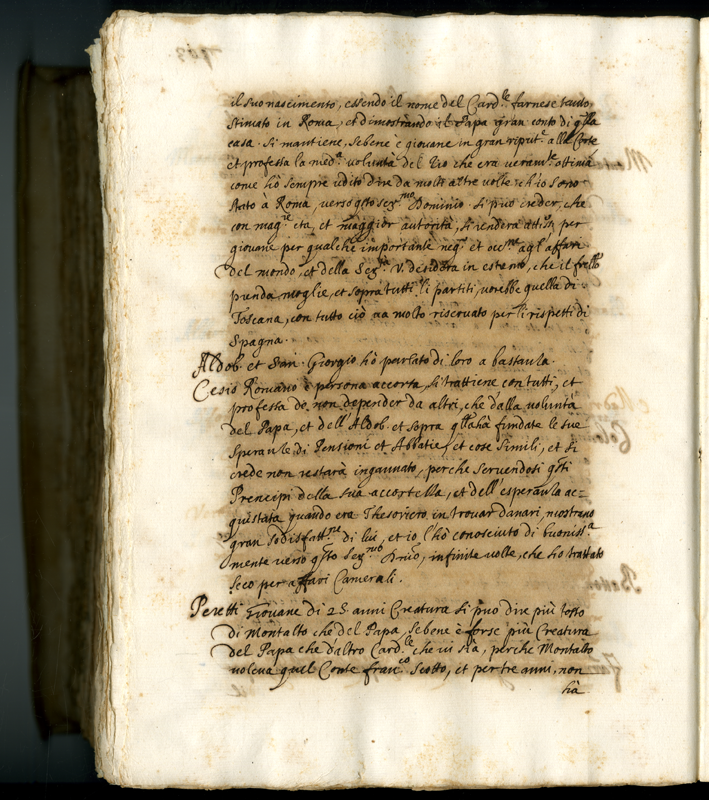 il suo nascimento, essendo il nome del Card.le farnese tanto
stimato in Roma, et dimostrando il Papa gran conto di q.lla
casa. Si mantiene, sebene è giovane in gran riput.e alla Corte
et professa la med.a voluntà del Zio che era veram.te ottima
come hò sempre udito dire da molti altre volte ch'io sono
stato à Roma, verso q.sto ser.mo Dominio. si può creder, che
con mag.re età, et maggior autorità, si renderà per
giovane per qualche importante neg.o et occ.ne agl'affari
del mondo, et della Ser.tà V. desidera in estento, che il frello
prenda moglie, et sopra tutti li partiti, vorebbe quella di
Toscana, con tutto ciò va molto riservato per li rispetti di
Spagna.
Aldob. et San Giorgio hò parlato di loro a bastanza.
Cesis Romano è persona accorta, si trattiene con tutti, et
professa de non depender da altri, che dalla voluntà
del Papa, et dell'Aldob. et sopra q.lla hà fundate le sue
speranze di Pensioni et Abbatie, et cose simili, et si
crede non restarà ingannato, perche servendosi q.sti
Prencipi della sua accortezza, et dell'esperanza ac=
quistata quando era Thesoriero in trovar danari, mostrano
gran sodisfatt.ne di lui, et io l'hò conosciuto di buoniss.a
mente verso q.sto ser.mo Dnio, infinite volte, che ho trattato
seco per affari Camerali.
Peretti Giovane di 25 anni Creatura si può dire più tosto
di Montalto che del Papa, sebene è forse più Creatura
del Papa che d'altro Card.le che vi sia, perche Montalto
voleva quel Conte fran.co Scotto, et per tre anni, non
hà